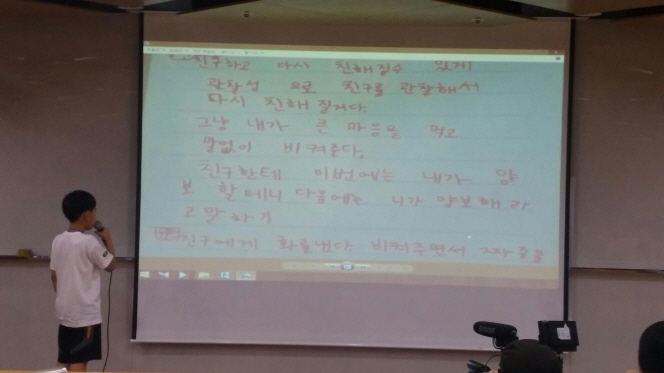 친구하고 다시 친해질수 있게
관찰성 으로 친구를 관찰해서
다시 친해 질거다.
그냥 내가 큰 마음을 먹고
말없이 비켜준다.
친구한테 이번에는 내가 양
보 할테니 다음에는 니가 양보해라
고 말하기
친구에게 화를냈다 비켜주면서